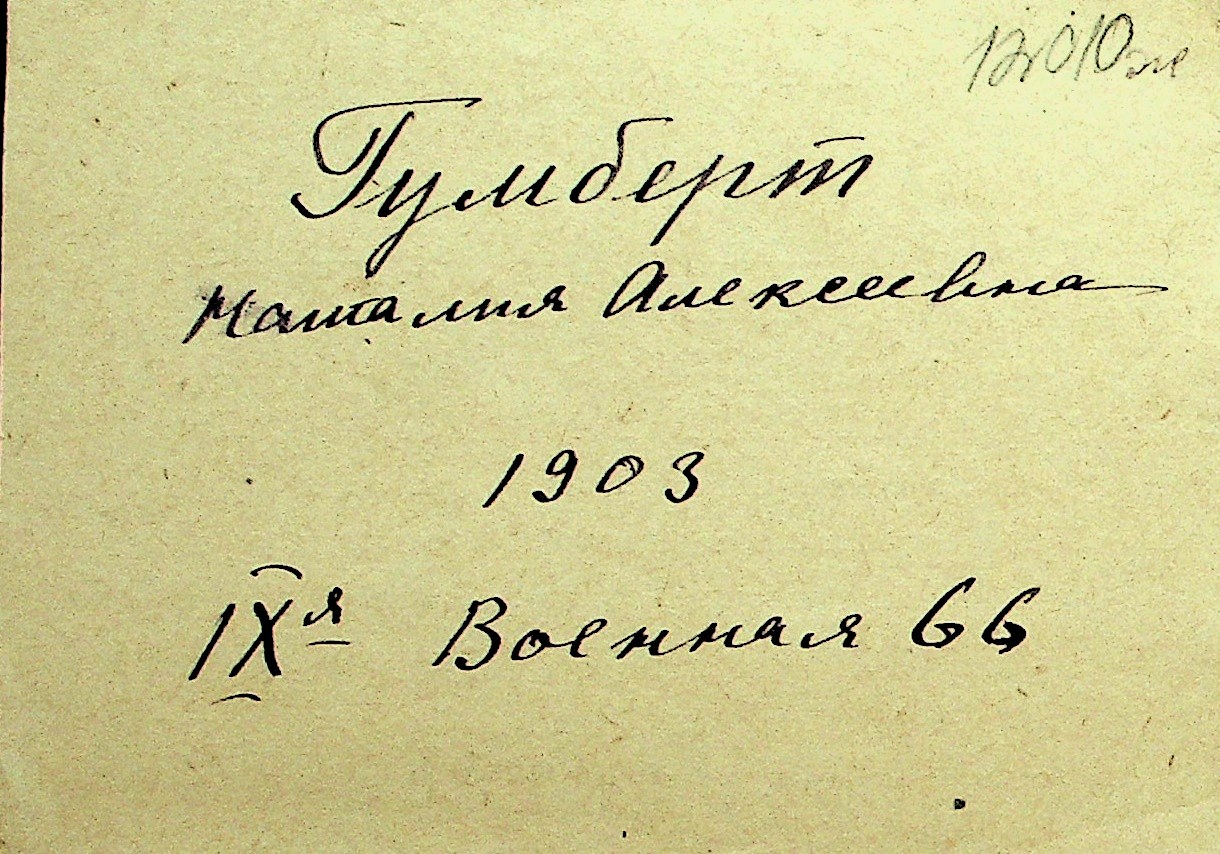 Гумберт
Наталия Алексеевна
1903
IXя Военная 66